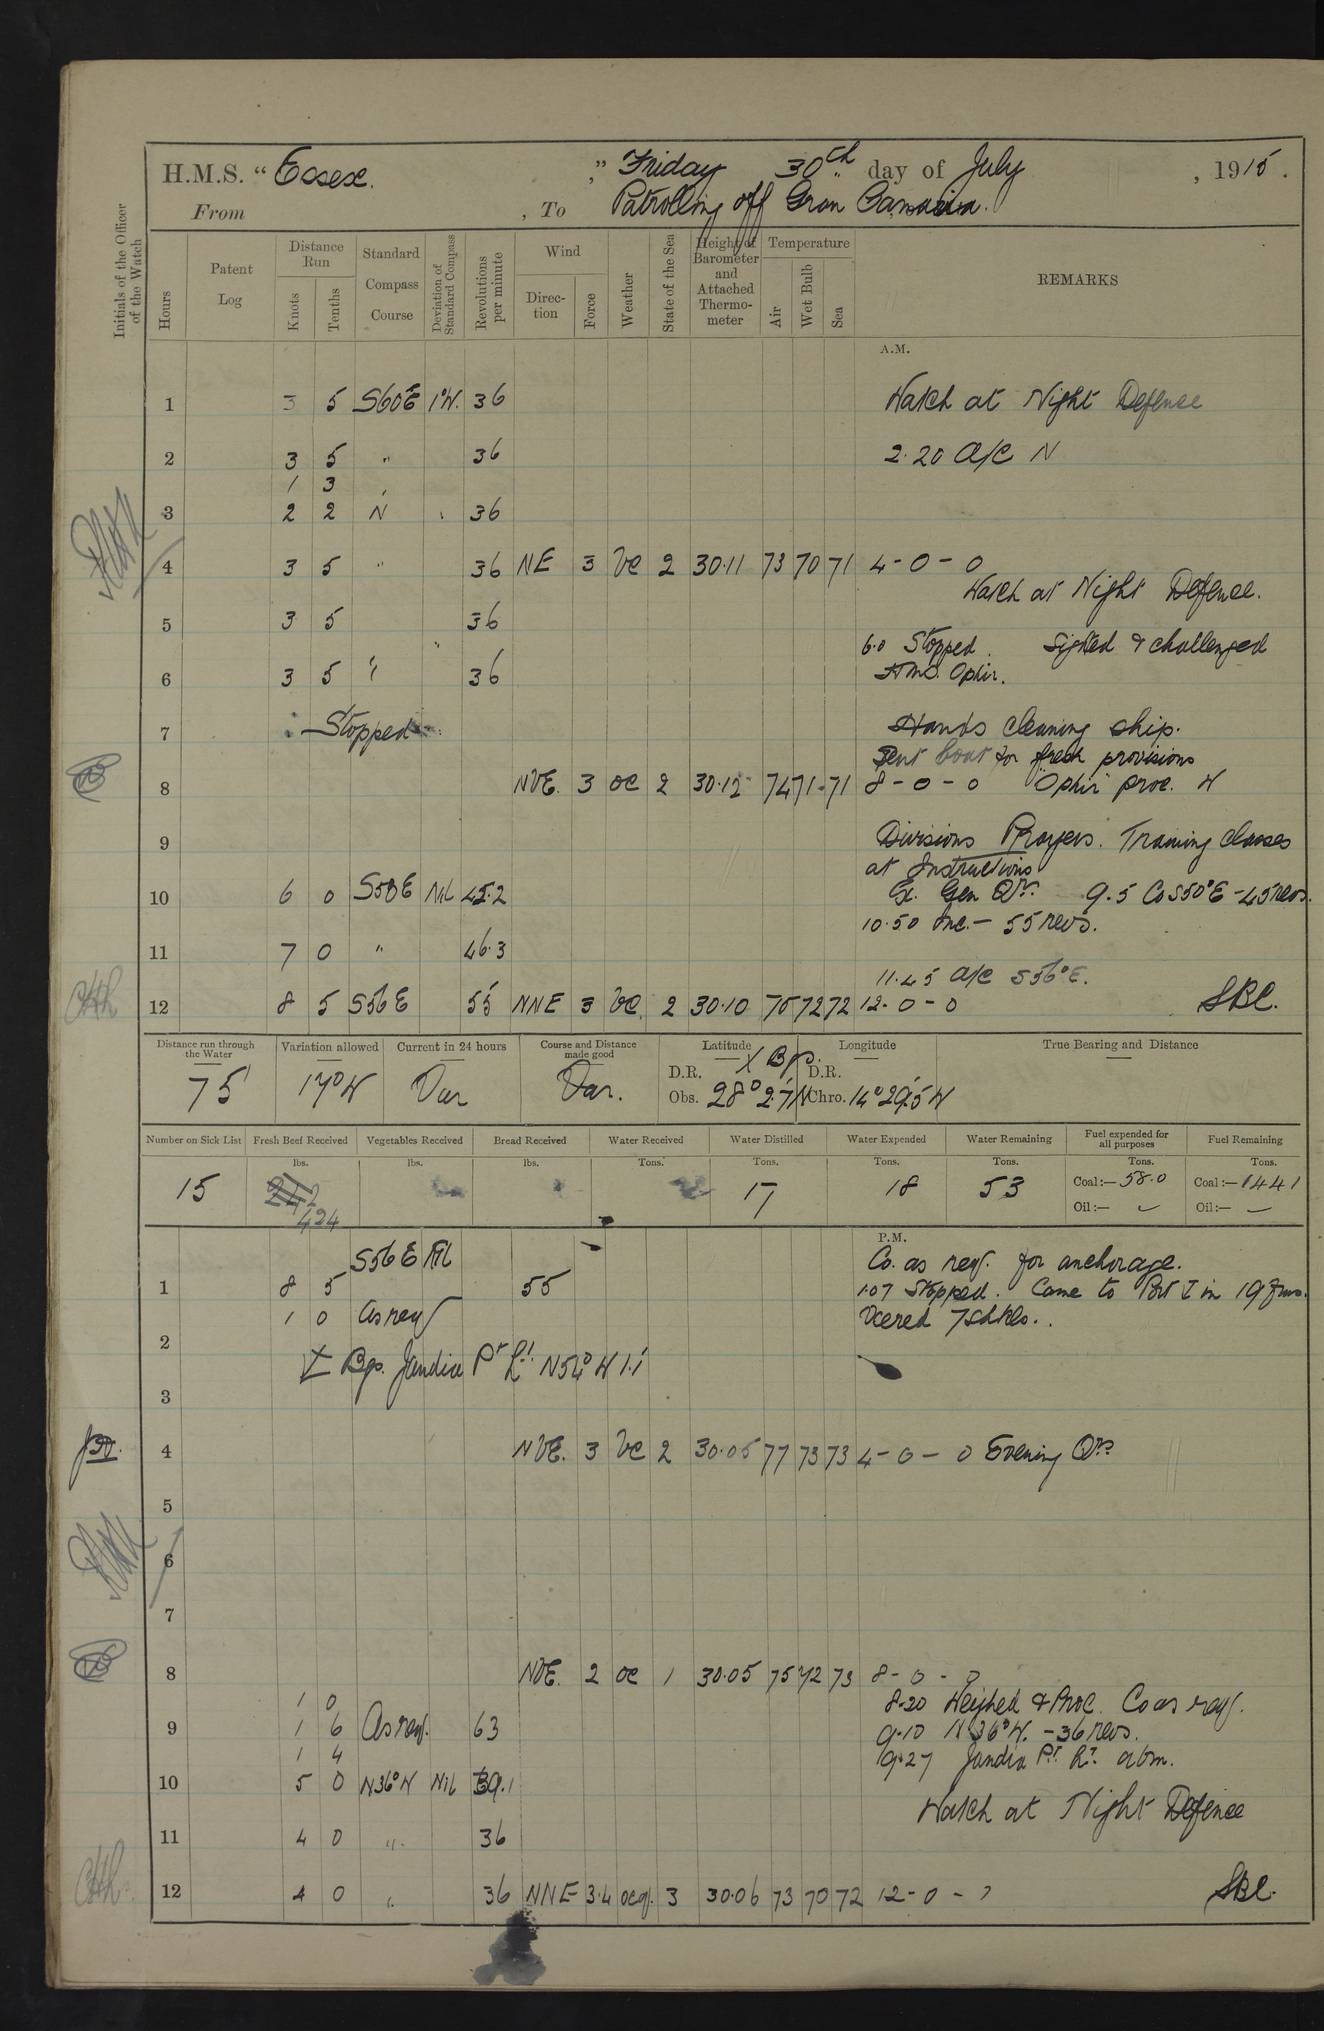 H.M.S. " Essex. ," Friday 30th day of July , 1915 .
From , To Patrolling off Gran Canaria.
Initials of the Officer of the Watch
Hours Patent Log Distance Run Knots Tenths Standard Compass Course Deviation of Standard Compass Revolutions per minute Wind Direc-tion Force Weather State of the Sea Height of Barometer and Attached Thermo-meter Temperature Air Wet Bulb Sea REMARKS
A.M.
1 3 5 S60E 1°W. 36 Watch at Night Defence
2 3 5 " 36 2.20 A/C N
1 3 "
3 2 2 N " 36
4 3 5 " 36 NE 3 bc 2 30.11 73 70 71 4-0-0
Watch at Night Defence.
5 3 5 36
6.0 Stopped. Sighted & challenged
6 3 5 " 36 HMS. Ophir.
7 Stopped Hands cleaning ship.
Sent boat for fresh provisions
8 NbE. 3 oc 2 30.12 74 71 71 8-0-0 "Ophir" proc. W
9 Divisions Prayers. Training Classes
at Instructions
10 6 0 S50E Nil 45.2 Ex. Gen Qrs. 9.5 Co S50°E -45 revs.
10.50 Inc. - 55 revs.
11 7 0 " 46.3
11.45 A/C S56°E.
12 8 5 S56E 55 NNE 3 bc 2 30.10 75 72 72 12-0-0 SBC.
Distance run through the Water Variation allowed Current in 24 hours Course and Distance made good Latitude Longitude True Bearing and Distance
X Bgs.
D.R. D.R.
75 17°W Var Var. Obs. 28° 2.7'N Chro. 14° 29.5'W
Number on Sick List Fresh Beef Received Vegetables Received Bread Received Water Received Water Distilled Water Expended Water Remaining Fuel expended for all purposes Fuel Remaining
lbs. lbs. lbs. Tons. Tons. Tons. Tons. Tons. Tons.
15 242 17 18 53 Coal:— 58.0 Coal:— 1441
424 Oil:— Oil:—
P.M.
S56E Nil Co. as req. for anchorage.
1 8 5 55 1.07 Stopped. Came to Port in 19 fms.
1 0 As req Veered 7 shkls.
2
Bgs. Jandia Pt Lt. N54°W 1.1'
3
4 NbE. 3 bc 2 30.05 77 73 73 4-0-0 Evening Qrs
5
6
7
8 NbE. 2 oc 1 30.05 75 72 73 8-0-0
1 0 8.20 Weighed & Proc. Co as req.
9 1 6 As req. 63 9.10 N36°W. -36 revs.
1 4 9.27 Jandia Pt. Lt. abm.
10 5 0 N36°W Nil 39.1
Watch at Night Defence
11 4 0 " 36
12 4 0 " 36 NNE 3.4 ocq. 3 30.06 73 70 72 12-0-0 SBC.